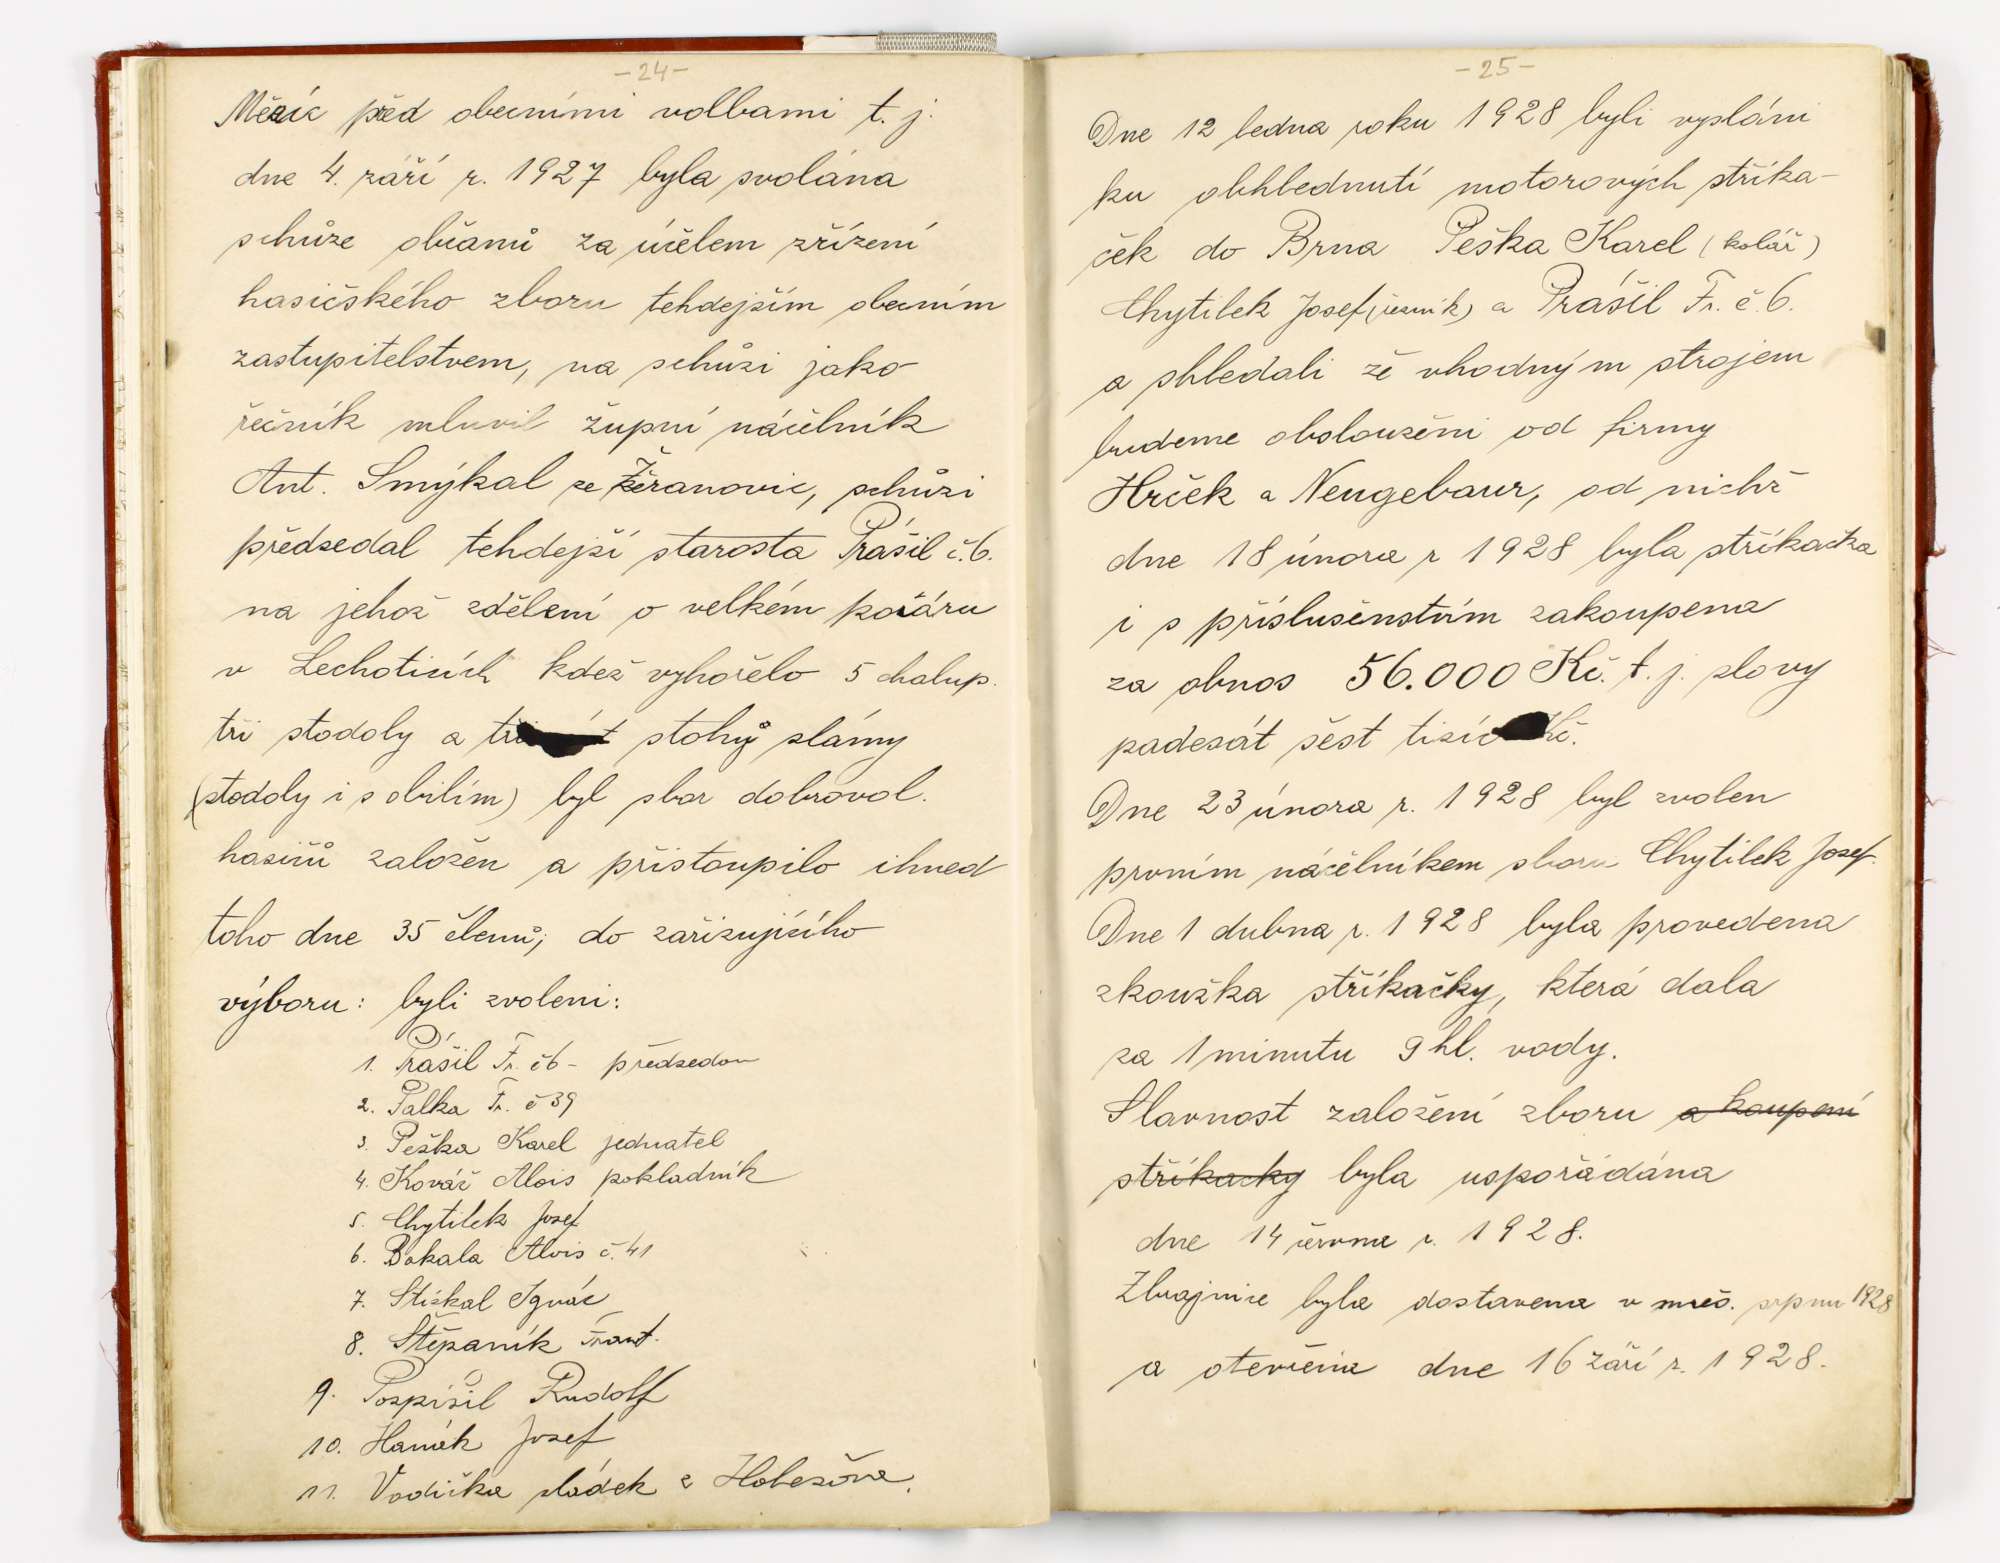 -24-
Měsíc před obecními volbami t. j.
dne 4. září r. 1927 byla svolána
schůze občanů za účelem zřízení
hasičského zboru tehdejším obecním
zastupitelstvem, na schůzi jako
řečník mluvil župní náčelník
Ant. Smýkal ze Žeranovic, schůzi
předsedal tehdejší starosta Prášil č.6.
na jehož zdělení o velkém požáru
v Lechoticích kdež vyhořelo 5 chalup.
tři stodoly a stohů slámy
(stodoly i s obilím) byl sbor dobrovol.
hasičů založen a přistoupilo ihned
toho dne 35 členů; do zařizujícího
výboru: byli zvoleni:
1. Prášil Fr. č6 - předsedou
2. Palka Fr. č 39
3. Peška Karel jednatel
4. Kovář Alois pokladník
5. Chytilek Josef
6. Bakala Alois č. 41
7. Stiskal Ignác
8. Štěpaník Frant.
9. Pospíšil Rudolf
10. Hanák Josef
11. Vodička sládek z Holešova.
-25-
Dne 12 ledna roku 1928 byli vysláni
ku obhlednutí motorových stříka-
ček do Brna Peška Karel (kolář)
Chytilek Josef (řezník) a Prášil Fr. č. 6.
a shledali že vhodným strojem
budeme obslouženi od firmy
Hrček a Neugebaur, od nichž
dne 18 února r 1928 byla stříkačka
i s příslušenstvím zakoupena
za obnos 56.000 Kč. t. j. slovy
padesát šest tisíc Kč.
Dne 23 února r. 1928 byl zvolen
prvním náčelníkem sboru Chytilek Josef.
Dne 1 dubna r. 1928 byla provedena
zkouška stříkačky, která dala
za 1 minutu 9 hl. vody.
Slavnost založení zboru a koupení
stříkacky byla uspořádána
dne 14 června r. 1928.
Zbrojnice byla dostavena v měs. srpnu 1928
a otevřena dne 16 září r. 1928.